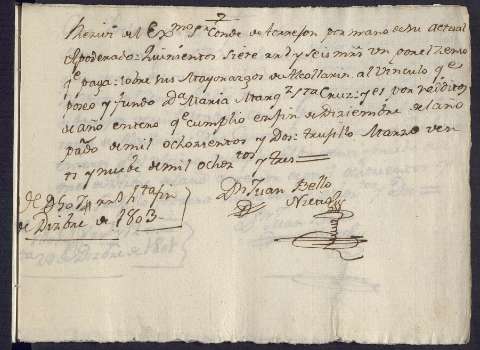 Recivi del Exmo Sr Conde de Torrejon por mano de su actual
Apoderado: Quinientos siete rrs y seis mrs vn por el zenso
qe paga: sobre sus Mayorazgos de Alcollarin al vinculo qe
poseo y fundo Da Maria Sta Cruz: y es por reditos
de año entero qe cumplio en fin de Diziembre de el año
pasdo de mil ochozientos y Dos: trujillo Marzo ven
ti y nuebe de mil ochoztos y tres
Dn Juan Bello
de Dho hta fin
de Dizbre de 1803